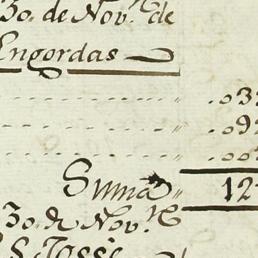 30. de Nov.ᵇ de
Engordas
.03
.09
.00
Suma 12
30. de Nov.ᵇ
S. Josse